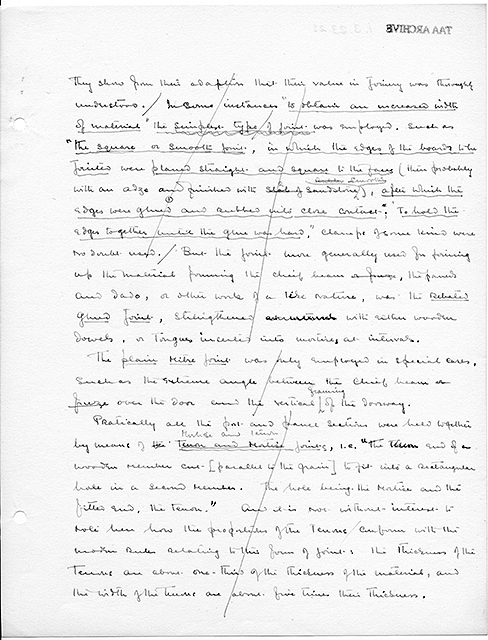 TAA ARCHIVE
They show from their adaption that their value in Joinery was thoroughly
understood. / In some instances "to obtain an increased width
of material" the simplest type of joint was employed. Such as
"the square or smooth joint", in which the edges of the boards to be
jointed were planed straight and square to the faces (then probably
with an adze and finished with of sandstone), after which the
edges were glued and rubbed into close contact". "To hold the
edges together until the glue was hard," clamps of some kind were
no doubt used. / But the joint more generally used for joining
up the material forming the chief beam or frieze, the panels
and Dado, or other work of a like nature, was the Rebated
Glued Joint, strengthened with either wooden
dowels, or tongues inserted into mortises, at intervals.
The plain Mitre Joint was only employed in special cases,
such as the extreme angle between the chief beam or
frieze over the door and the vertical framing of the doorway.
Pratically all the post and panel sections were held together
by means of Mortise and Tenon
the Tenon and Mortice Joints, i.e. "the Tenon end of a
wooden member cut [parallel to the grain] to fit into a rectangular
hole in a second member. The hole being the Mortice and the
fitted end, the Tenon." And it is not without interest to
note here how the proportions of the Tenons conform with the
modern rules relating to this form of joint: the thickness of the
Tenons are about one-third of the thickness of the material, and
the width of the tenons are about five times their thickness.